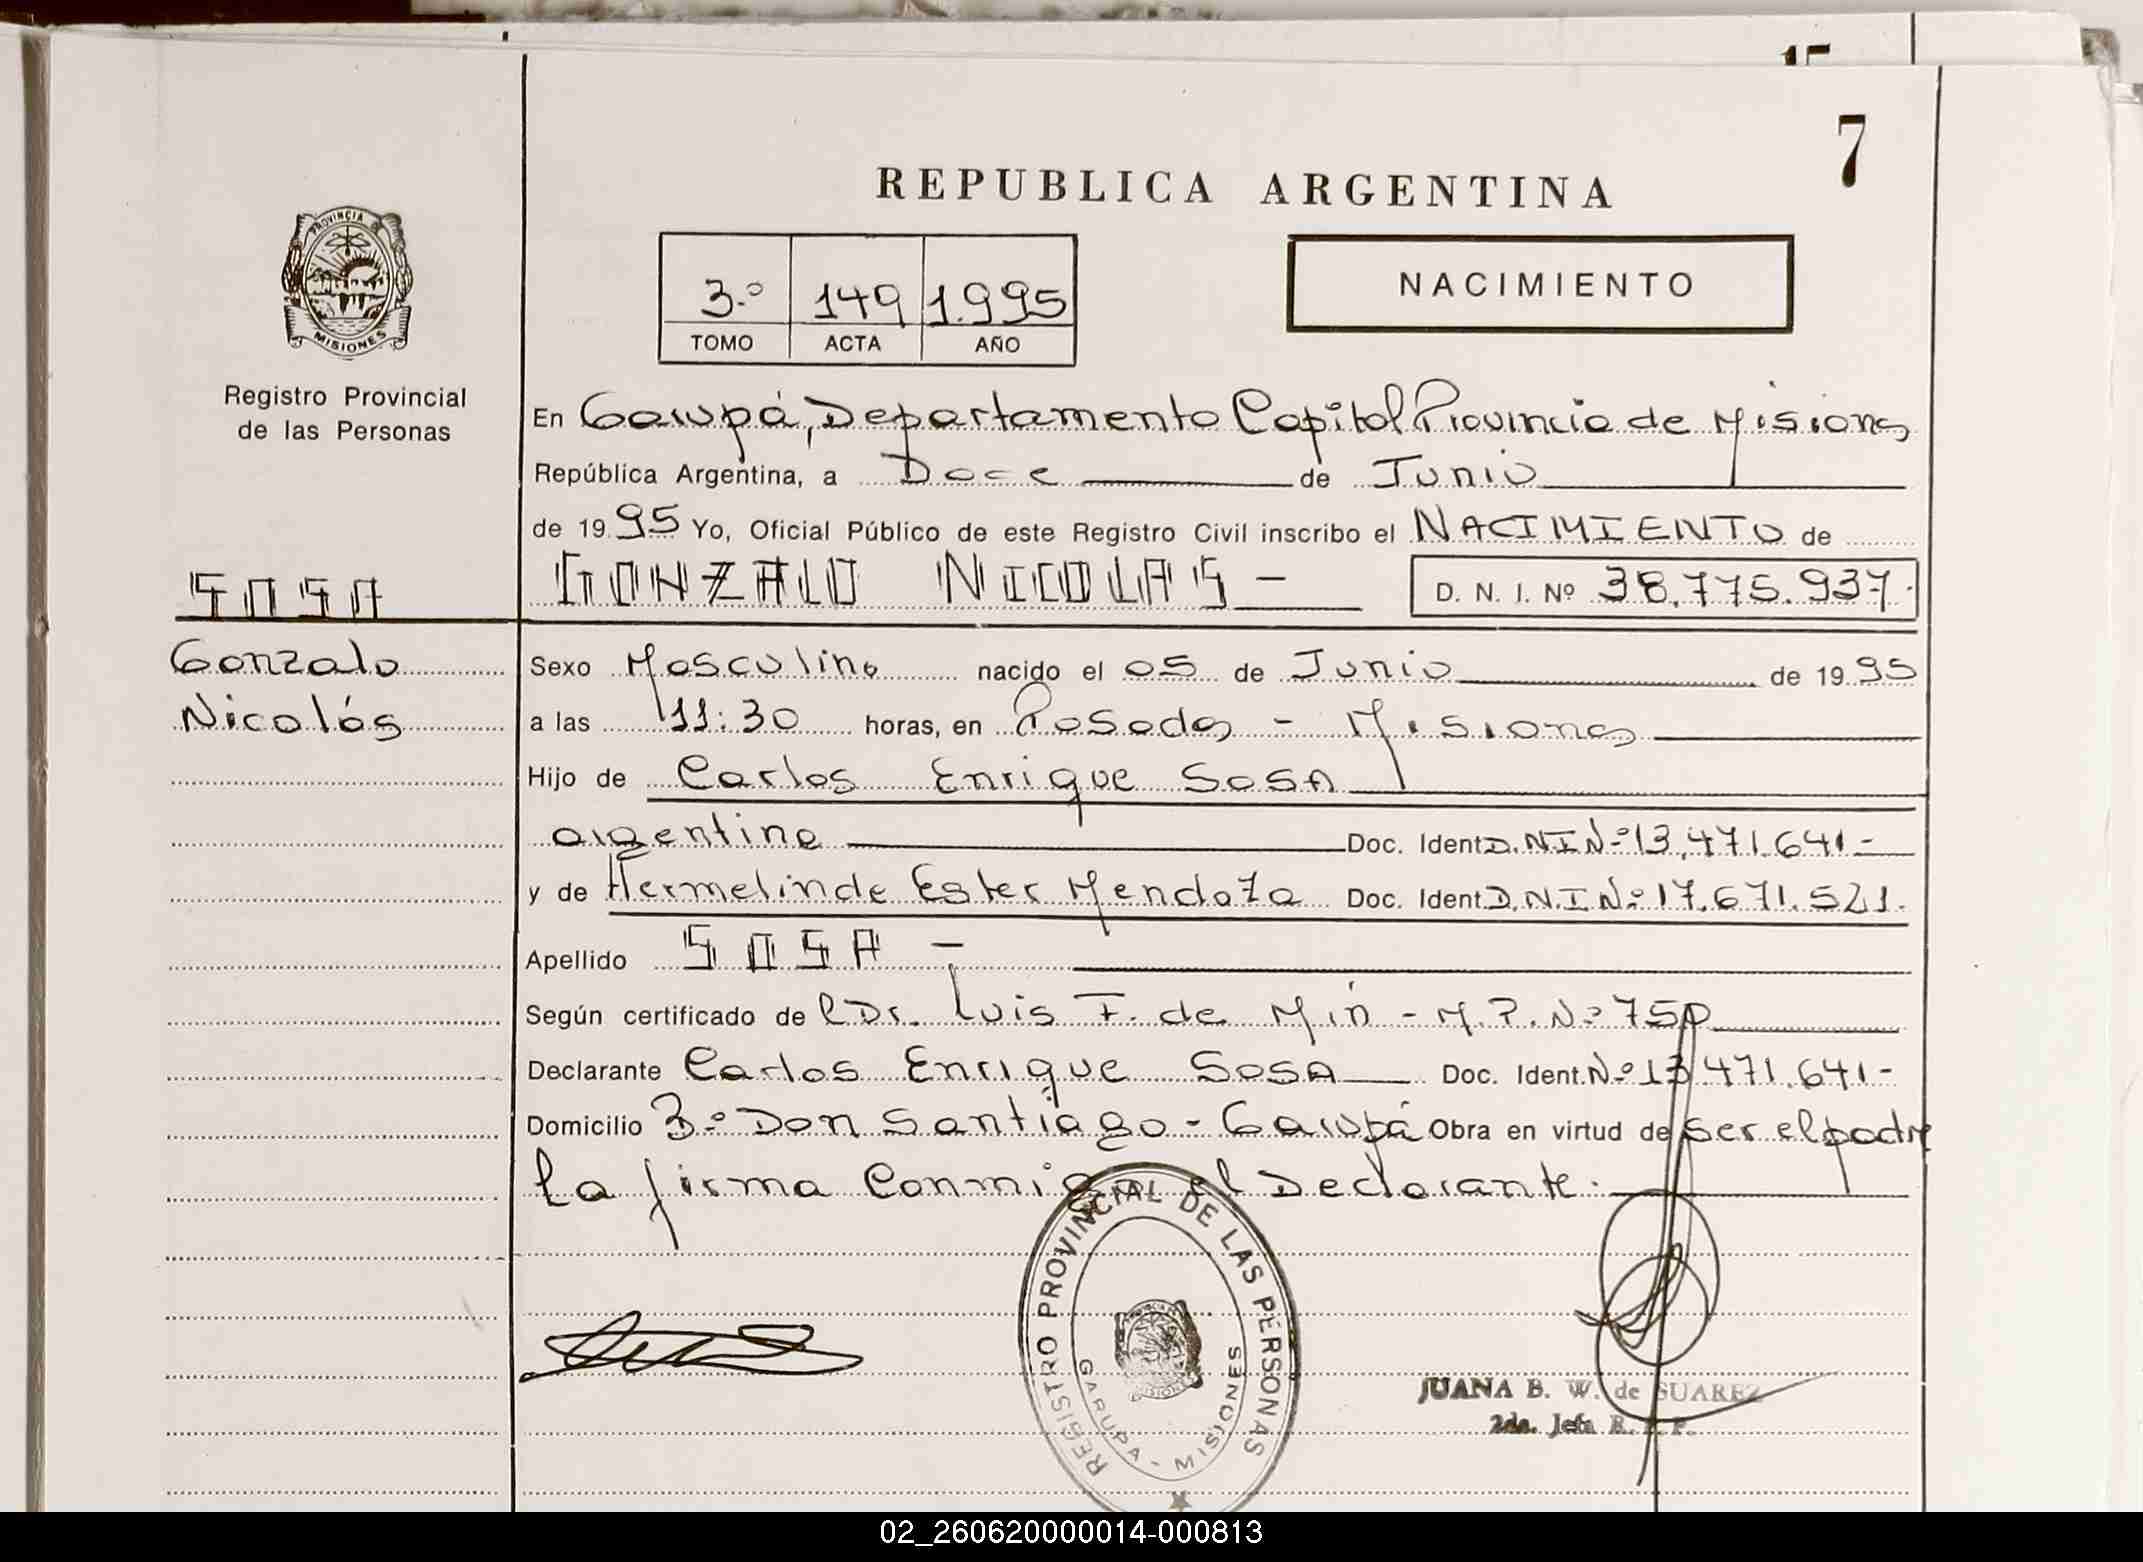 15
7
REPUBLICA ARGENTINA
PROVINCIA
MISIONES
3.º 149 1.995
TOMO ACTA AÑO
NACIMIENTO
Registro Provincial
de las Personas
En Garupá, Departamento Capital Provincia de Misiones
República Argentina, a Doce de Junio
de 1995 Yo, Oficial Público de este Registro Civil inscribo el NACIMIENTO de
SOSA
GONZALO NICOLAS - D. N. I. Nº 38.775.937.
Gonzalo
Nicolás
Sexo Masculino nacido el 05 de Junio de 1995
a las 11:30 horas, en Posadas - Misiones
Hijo de Carlos Enrique SOSA
argentino Doc. Ident. D.N.I Nº 13.471.641-
y de Hermelinda Ester Mendoza Doc. Ident. D.N.I Nº 17.671.521.
Apellido SOSA -
Según certificado de l Dr. Luis F. de Min - M.P. Nº 750
Declarante Carlos Enrique SOSA Doc. Ident. Nº 13 471.641-
Domicilio Bº Don Santiago - Garupá Obra en virtud de ser el padre
la firma conmigo el Declarante.
REGISTRO PROVINCIAL DE LAS PERSONAS
GARUPA - MISIONES
MISIONES
JUANA B. W. de SUAREZ
2da. Jefa R. P. P.
02_260620000014-000813